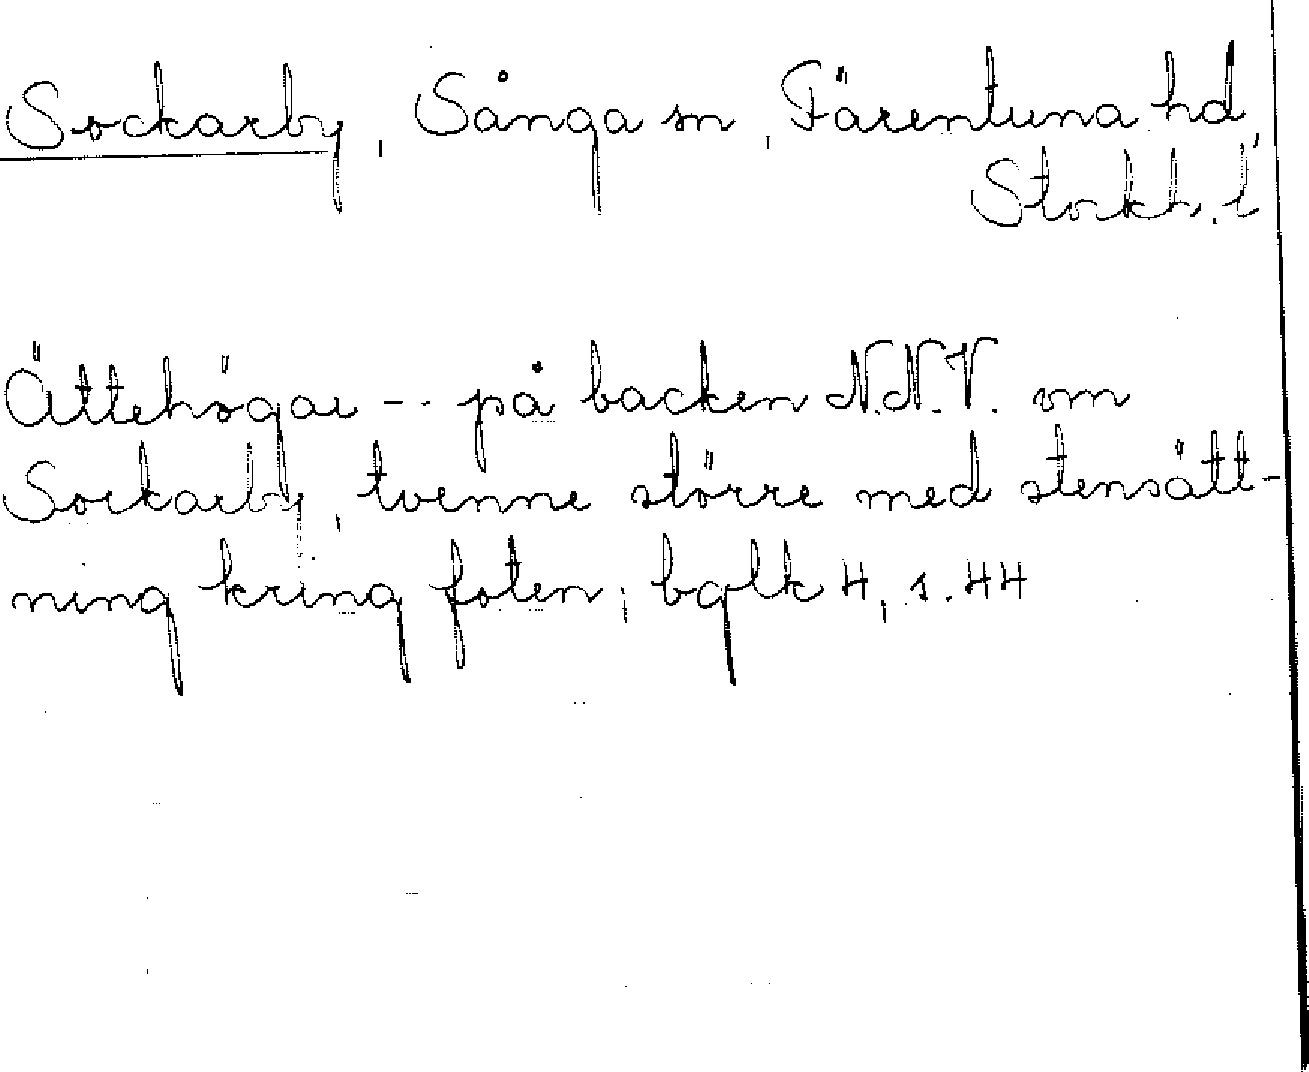 Sockarby, Sånga sn, Färentuna hd,
Stockh. l
Ättehögar -- på backen N.N.V. om
Sockarby, tvenne större med stensätt-
ning kring foten; bglk 4, s. 44